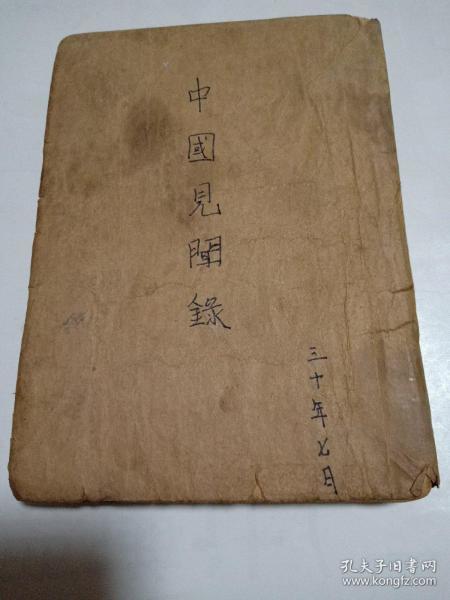 中國見聞錄
三十年七月
孔夫子旧书网
www.kongfz.com